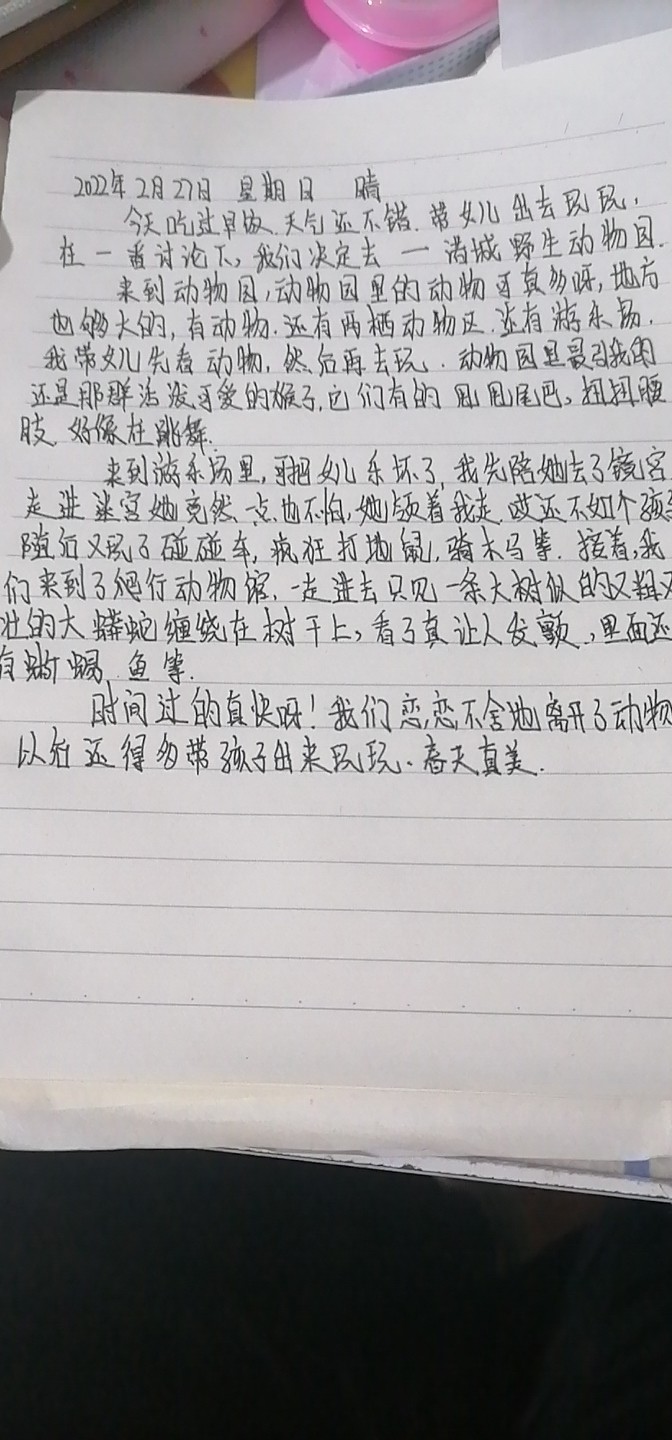 2022年2月27日 星期日 晴
今天吃过早饭.天气还不错.带女儿出去玩玩,
在一番讨论下,我们决定去一满城野生动物园.
来到动物园,动物园里的动物可真多呀,地方
也够大的,有动物.还有两栖动物区.还有游乐场.
我带女儿先看动物,然后再去玩.动物园里最引我的
还是那群活泼可爱的猴子,它们有的甩甩尾巴、扭扭腰
肢.好像在跳舞.
来到游乐场里,可把女儿乐坏了,我先陪她去了镜宫
走进迷宫她竟然一点也不怕,她领着我走.哎还不如个孩
随后又玩了碰碰车,疯狂打地鼠,骑木马等.接着,我
们来到了爬行动物馆.一走进去只见一条大树似的又粗又
壮的大蟒蛇缠绕在树干上,看了真让人发颤,里面还
有蜥蜴.鱼等.
时间过的真快呀!我们恋恋不舍地离开了动物
以后还得多带孩子出来玩玩、春天真美.